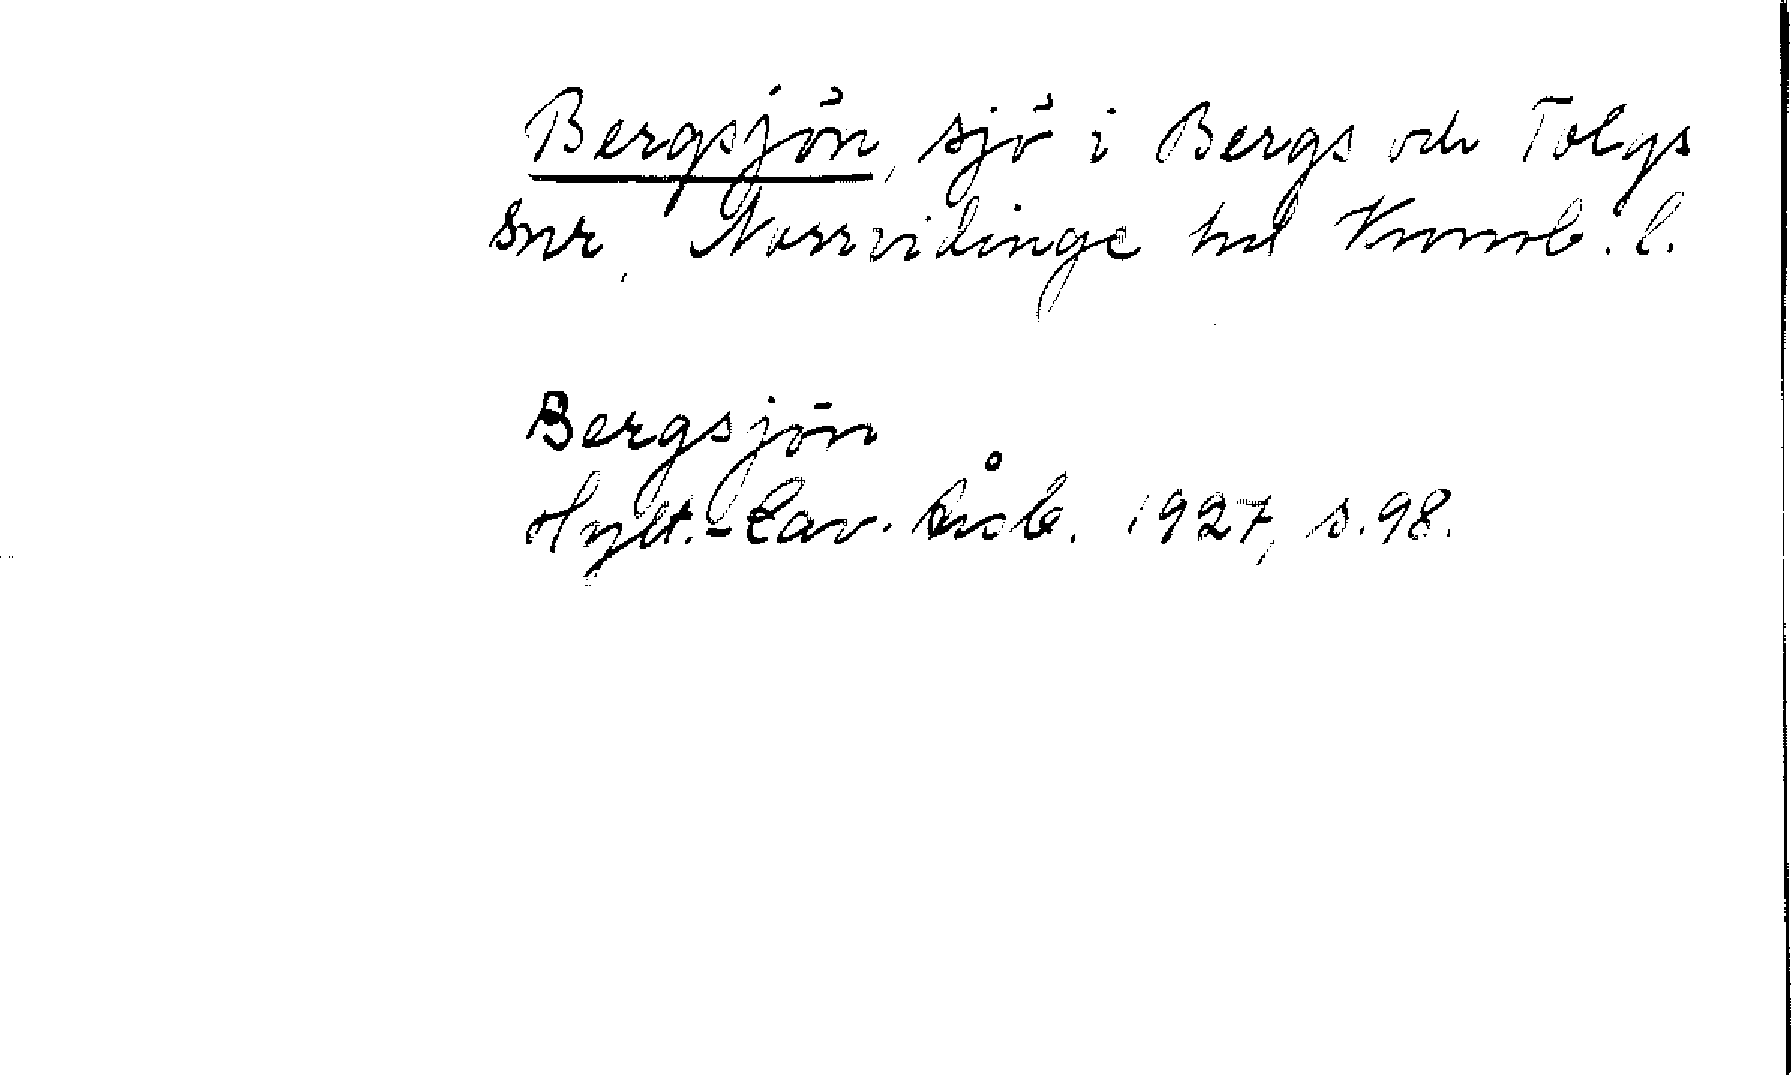 Bergsjön, sjö i Bergs och Tolgs
snr, Norrvidinge hd Kronob. l.
Bergsjön
Hylt.-Cav. Årsb. 1927, s. 98.